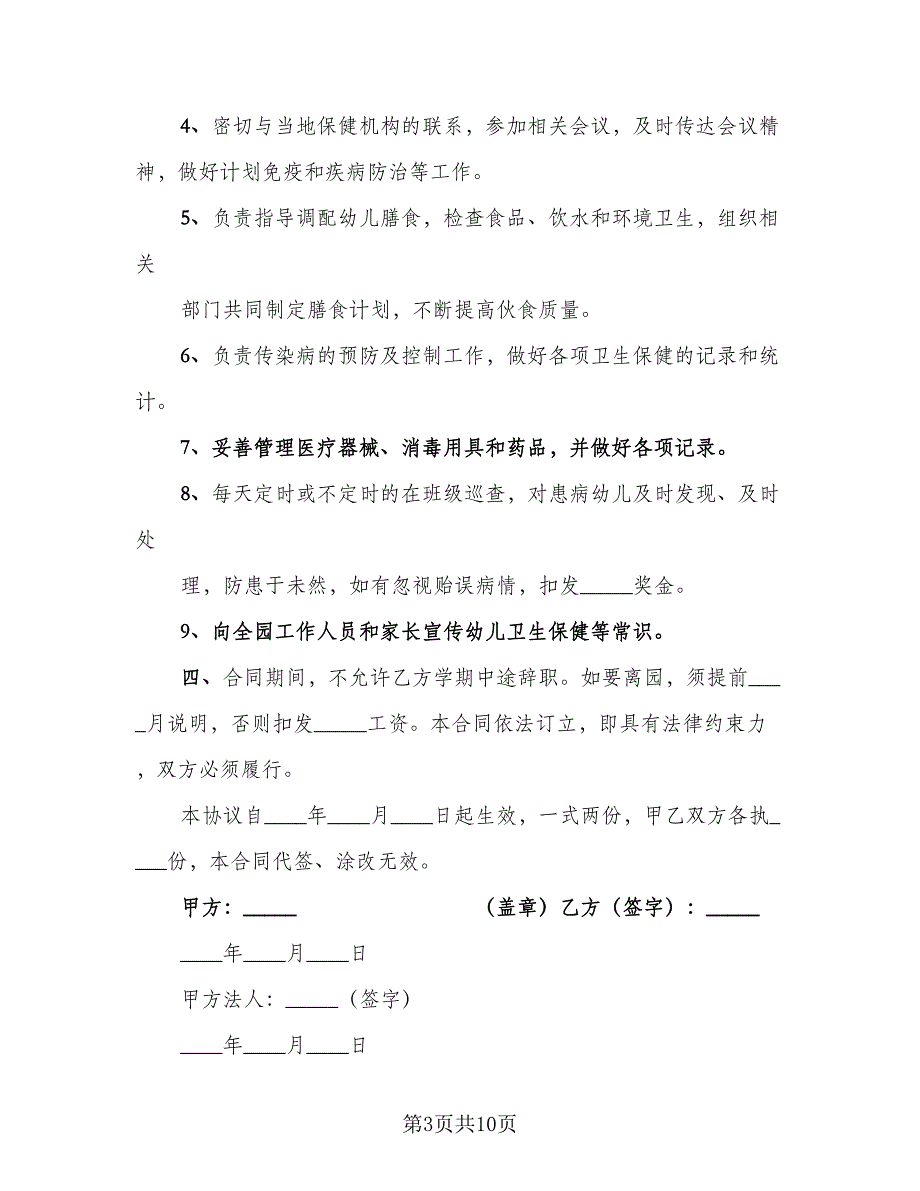 4、密切与当地保健机构的联系，参加相关会议，及时传达会议精
神，做好计划免疫和疾病防治等工作。
5、负责指导调配幼儿膳食，检查食品、饮水和环境卫生，组织相
关
部门共同制定膳食计划，不断提高伙食质量。
6、负责传染病的预防及控制工作，做好各项卫生保健的记录和统
计。
7、妥善管理医疗器械、消毒用具和药品，并做好各项记录。
8、每天定时或不定时的在班级巡查，对患病幼儿及时发现、及时
处
理，防患于未然，如有忽视贻误病情，扣发_____奖金。
9、向全园工作人员和家长宣传幼儿卫生保健等常识。
四、合同期间，不允许乙方学期中途辞职。如要离园，须提前___
_月说明，否则扣发_____工资。本合同依法订立，即具有法律约束力
，双方必须履行。
本协议自____年____月____日起生效，一式两份，甲乙双方各执_
___份，本合同代签、涂改无效。
甲方：_____ （盖章）乙方（签字）：_____
____年____月____日
甲方法人：_____（签字）
____年____月____日
第3页共10页